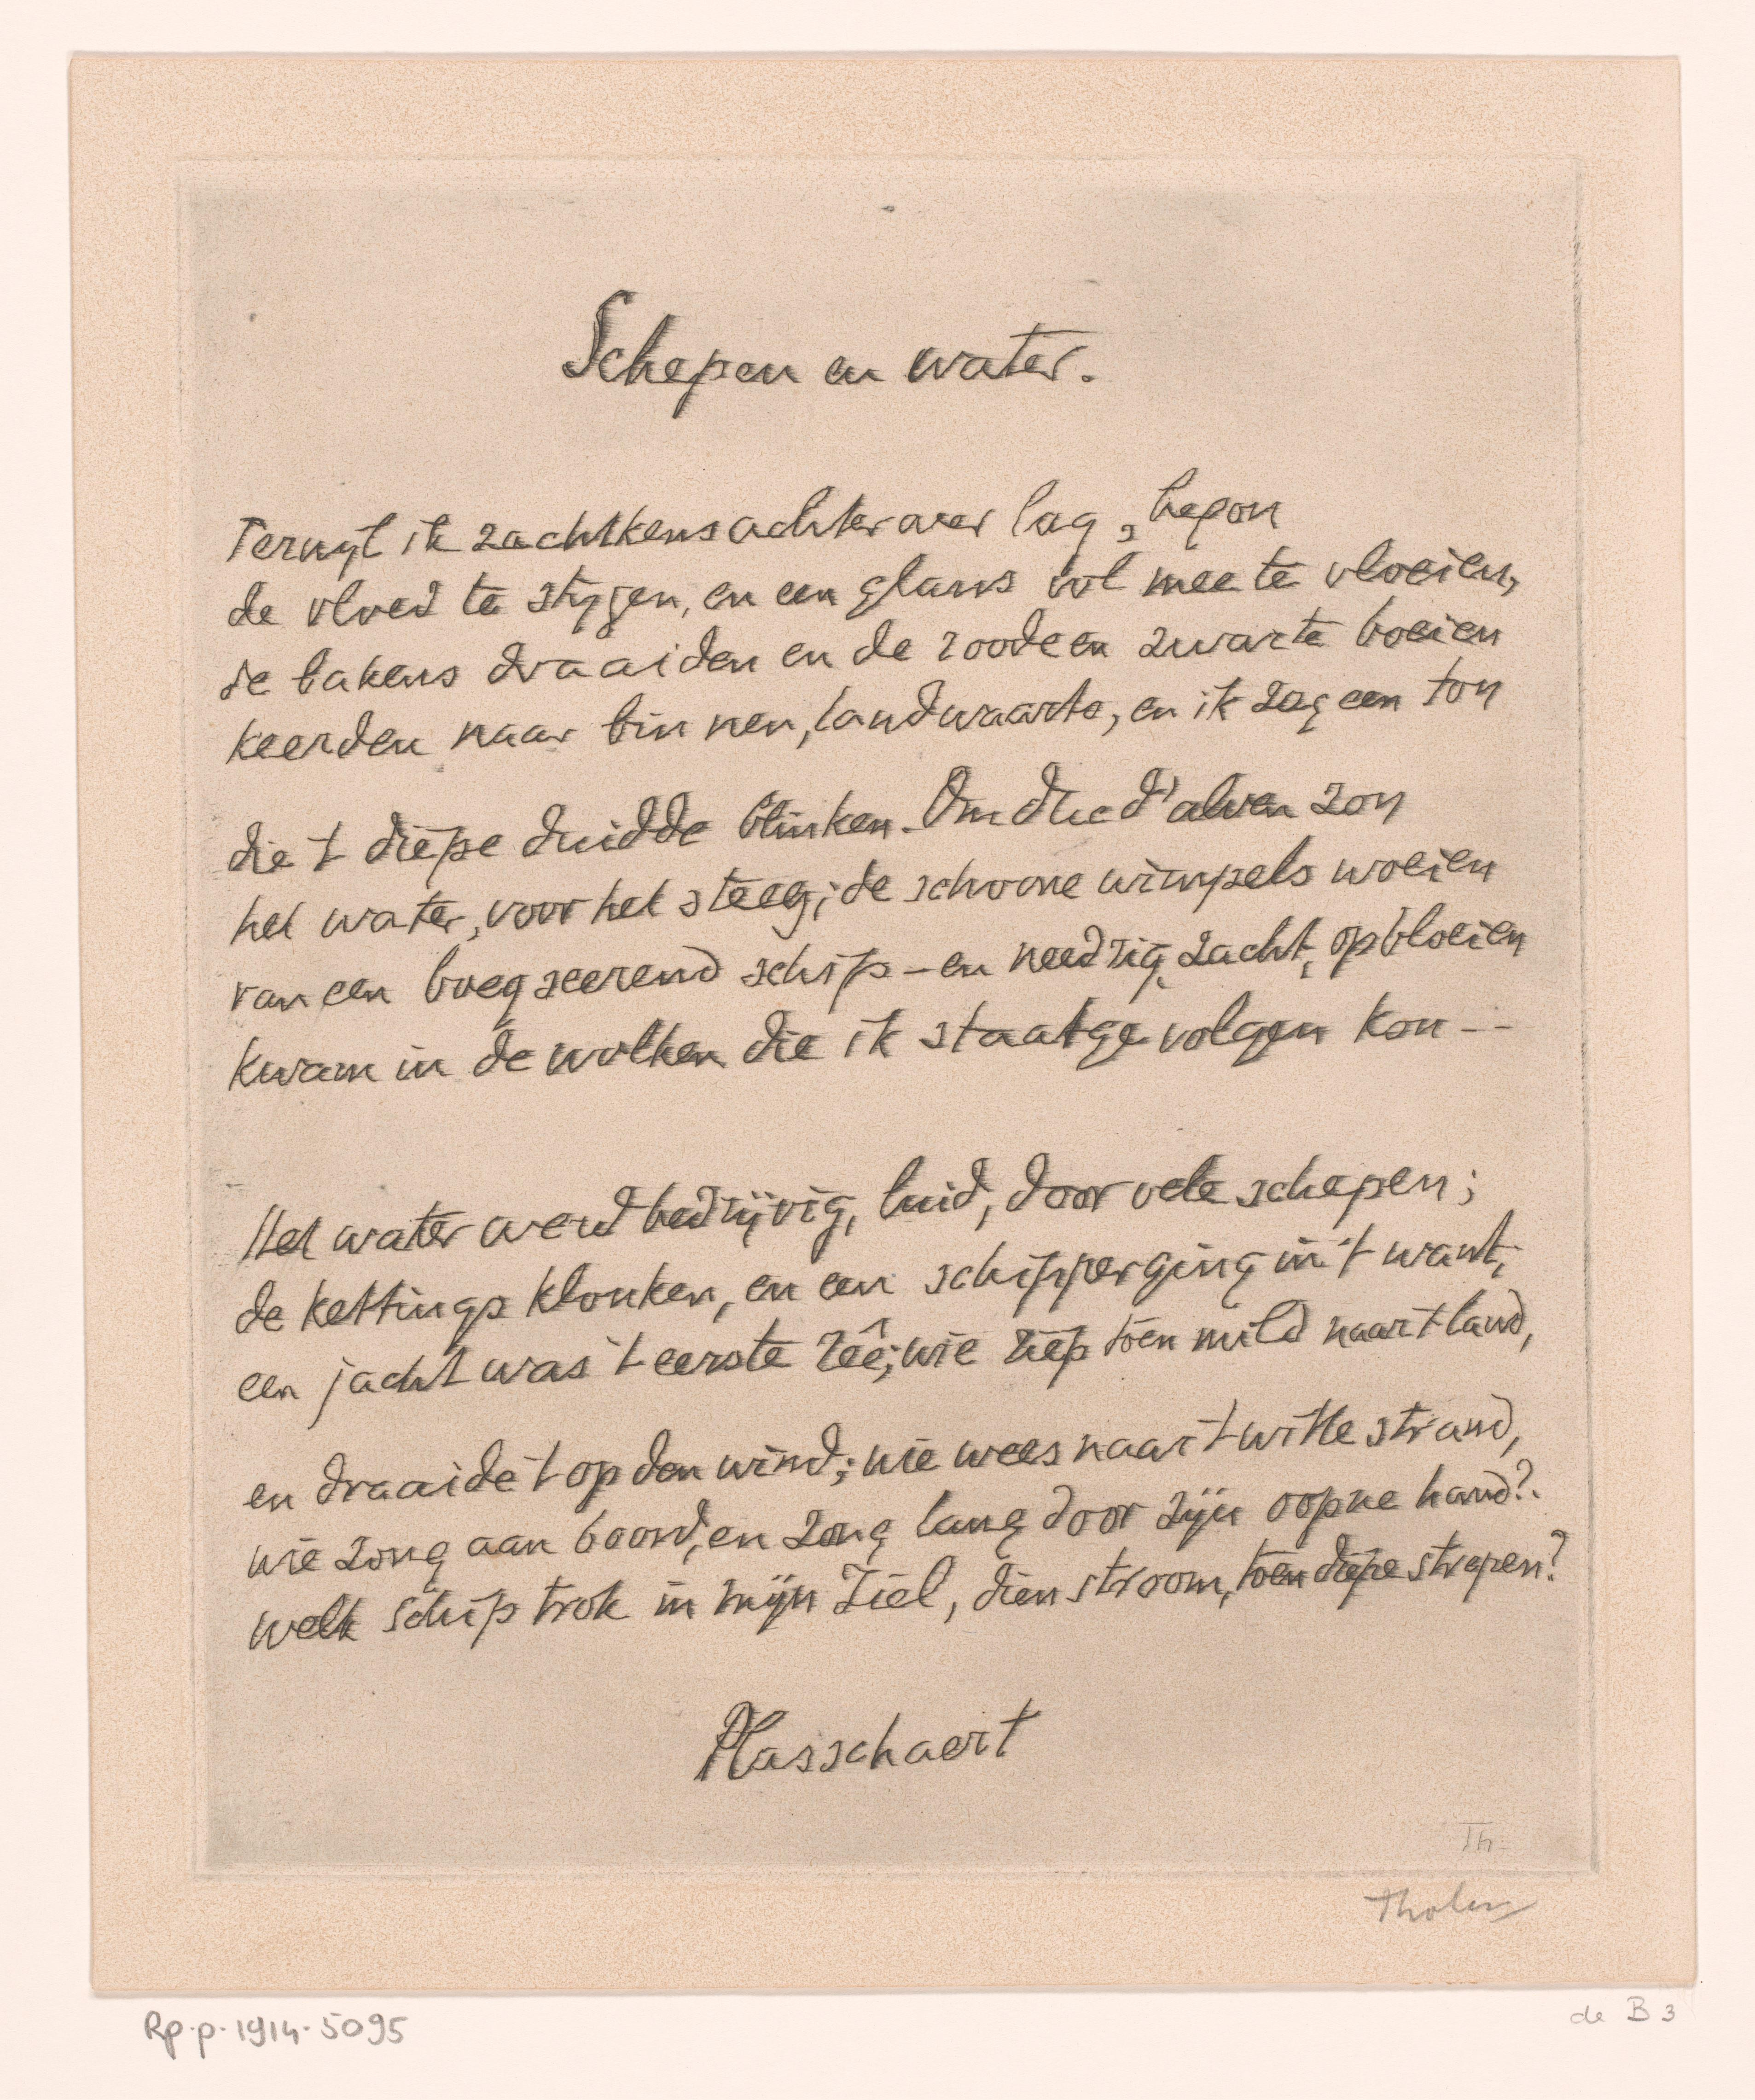 Schepen en water.
Terwyl ik zachtkens achterover lag, begon
de vloed te stygen, en een glans vol mee te vloeien,
de bakens draaiden en de roode en zwarte boeien
keerden naar binnen, landwaarts, en ik zag een ton
die 't diepe duidde blinken. Om d'alven zon
het water, voor het steeg; de schoone wimpels woeien
van een boegseerend schip – en needrig, zacht, opbloeien
kwam in de wolken die ik staatge volgen kon --
Het water werd bedrijvig, luid, door vele schepen;
de kettings klonken, en een schipper ging in 't want;
een jacht was 't eerste reê; wie riep toen mild naar 't land,
en draaide 't op den wind; wie wees naar 't witte strand,
wie zong aan boord, en zong lang door zijn oopne hand?
welk schip trok in mijn Ziel, dien stroom, toen diepe strepen?
Plasschaert
Th.
Tholen
Rp-p-1914-5095
de B 3